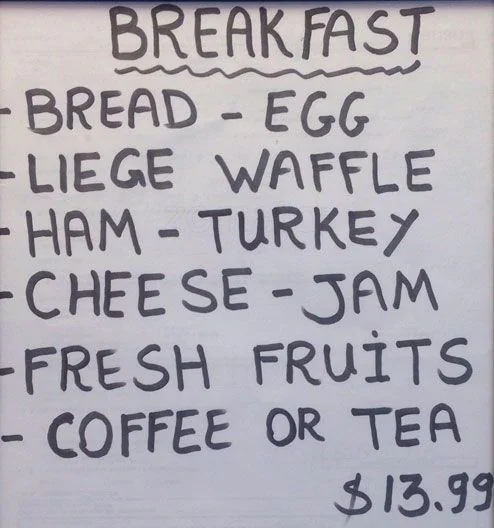 BREAKFAST
- BREAD - EGG
- LIEGE WAFFLE
- HAM - TURKEY
- CHEESE - JAM
- FRESH FRUİTS
- COFFEE OR TEA
$13.99